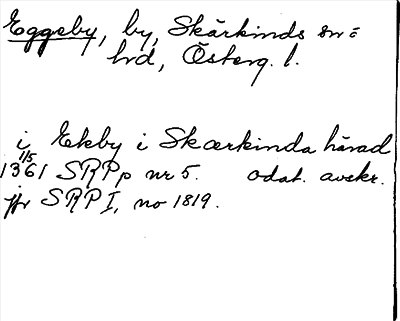 Eggeby, by, Skärkinds sn o
hrd, Österg. l.
i Ekby i Skærkinda härad
1/5
1361 SRPp nr 5. odat. avskr.
jfr SRP I, no 1819.